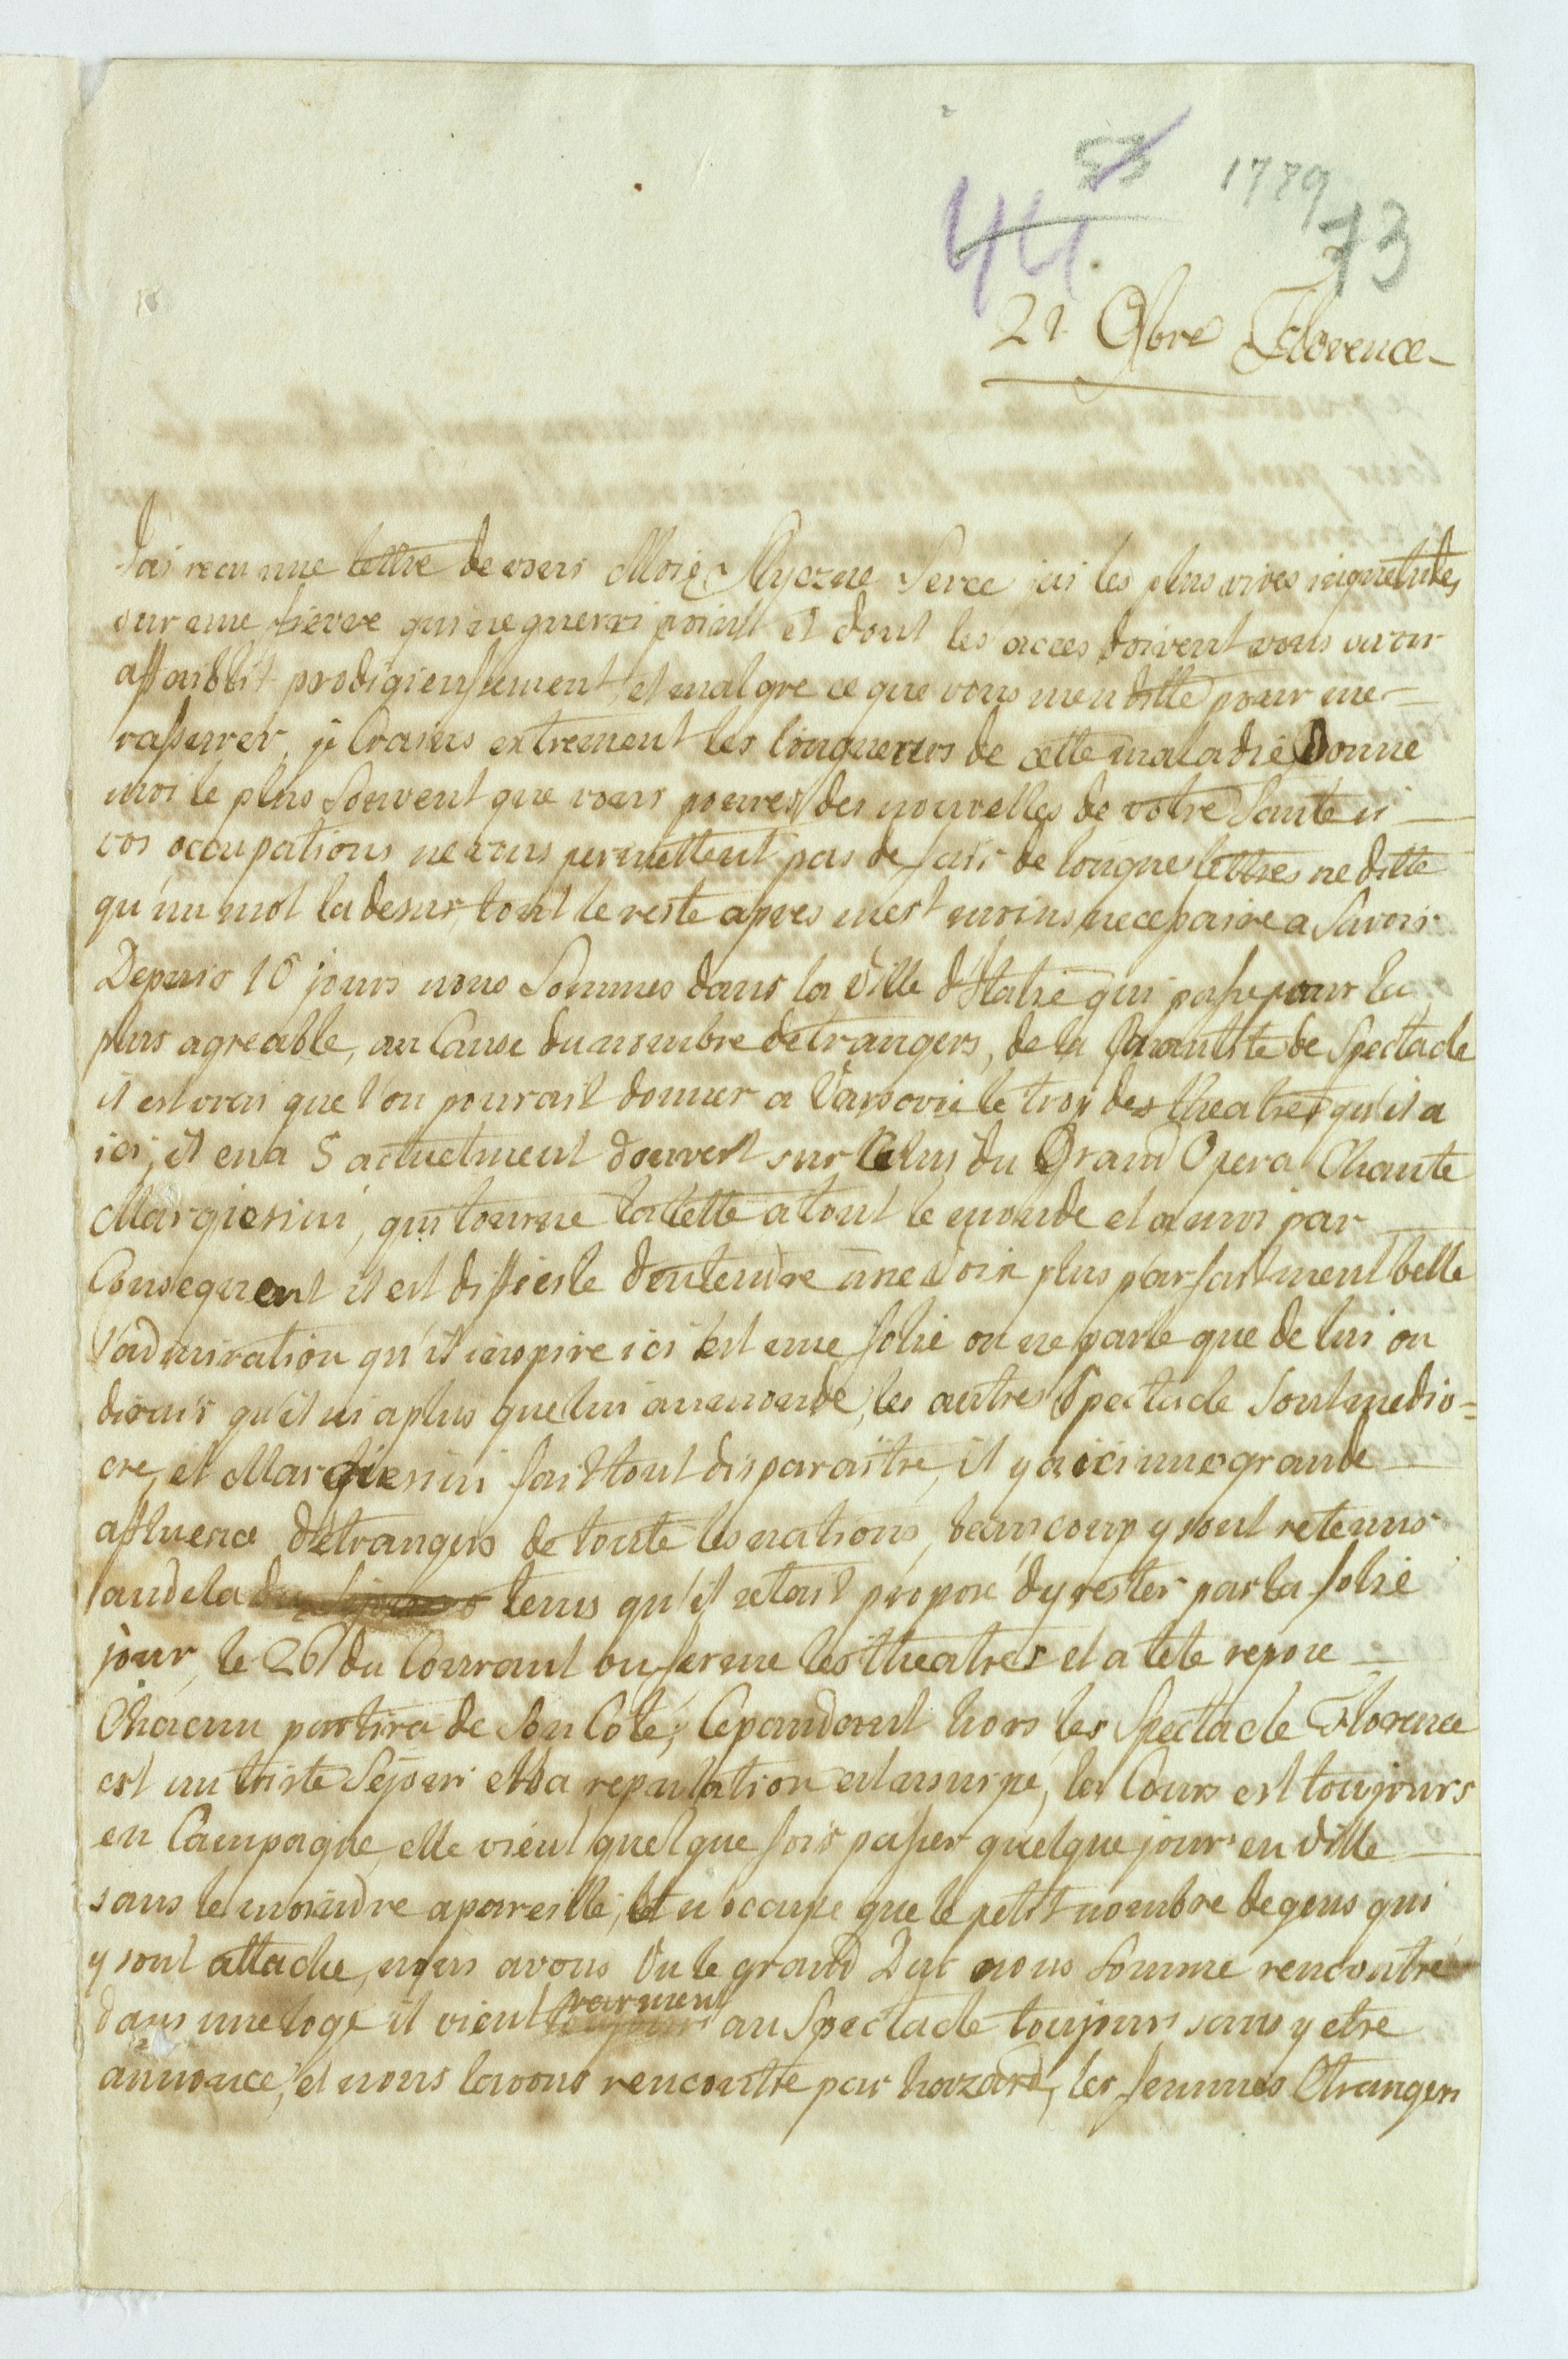 53
44.
1789
73
21. 9bre Florence
J'ai recu une lettre de vous Moie Slyczne Serce jai les plus vives inquietudes
sur une fievre qui ne guerri point et dont les acces doivent vous avoir
affaiblit prodigieusement, et malgre ce que vous men ditte pour me
rassurer, je Crains extrement les longueurs de cette maladie, Donne
moi le plus Souvent que vous pouves des nouvelles de votre Sante si
vos occupations ne vous permettent pas de fair de longues lettres ne ditte
qu'un mot la desur tout le reste apres mest moins necessaire a Savoir
Depuis 10 jours nous Sommes dans la Ville d'Italie qui passe pour la
plus agreable, au Cause du nombre detrangers, de la quantite de Spectacle
il est vrai que l'on pourait donner a Varsovie le trop des theatres qu'il a
ici, il en a 5 actuelment douvert sur Celui du Grand Opera Chante
Margiesini, qui tourne la tette a tout le monde et a moi par
Consequent il est difficile d'entendre une voix plus parfaitment belle
l'admiration qu'il inspire ici est une folie on ne parle que de lui on
dirais qu'il ni a plus que lui au monde, les autres Spectacle sont medio=
cre, et Margiesini fait tout disparaitre, il y a ici une grande
affluence d'etrangers de toute les nations, beaucoup y sont retenus
audela tems qu'il setait propose dy rester par la folie
jour, le 26 du Courrant on ferme les theatres et a tete repose
Chacun partira de Son Coté, Cepandant hors les Spectacle Florence
est un triste Sejour et sa reputation est usurpe, la Cour est toujours
en Campagne, elle vient quelque fois passer quelque jour en ville
sans le moindre apareille, et n'occupe que le petit nombre de gens qui
y sont attache, nous avons Vu le grand Duc nous Somme rencontre
dans une loge il vient rarment au Spectacle toujours sans y etre
annonce, et nous lavons rencontre par hazard, les femmes Etrangers